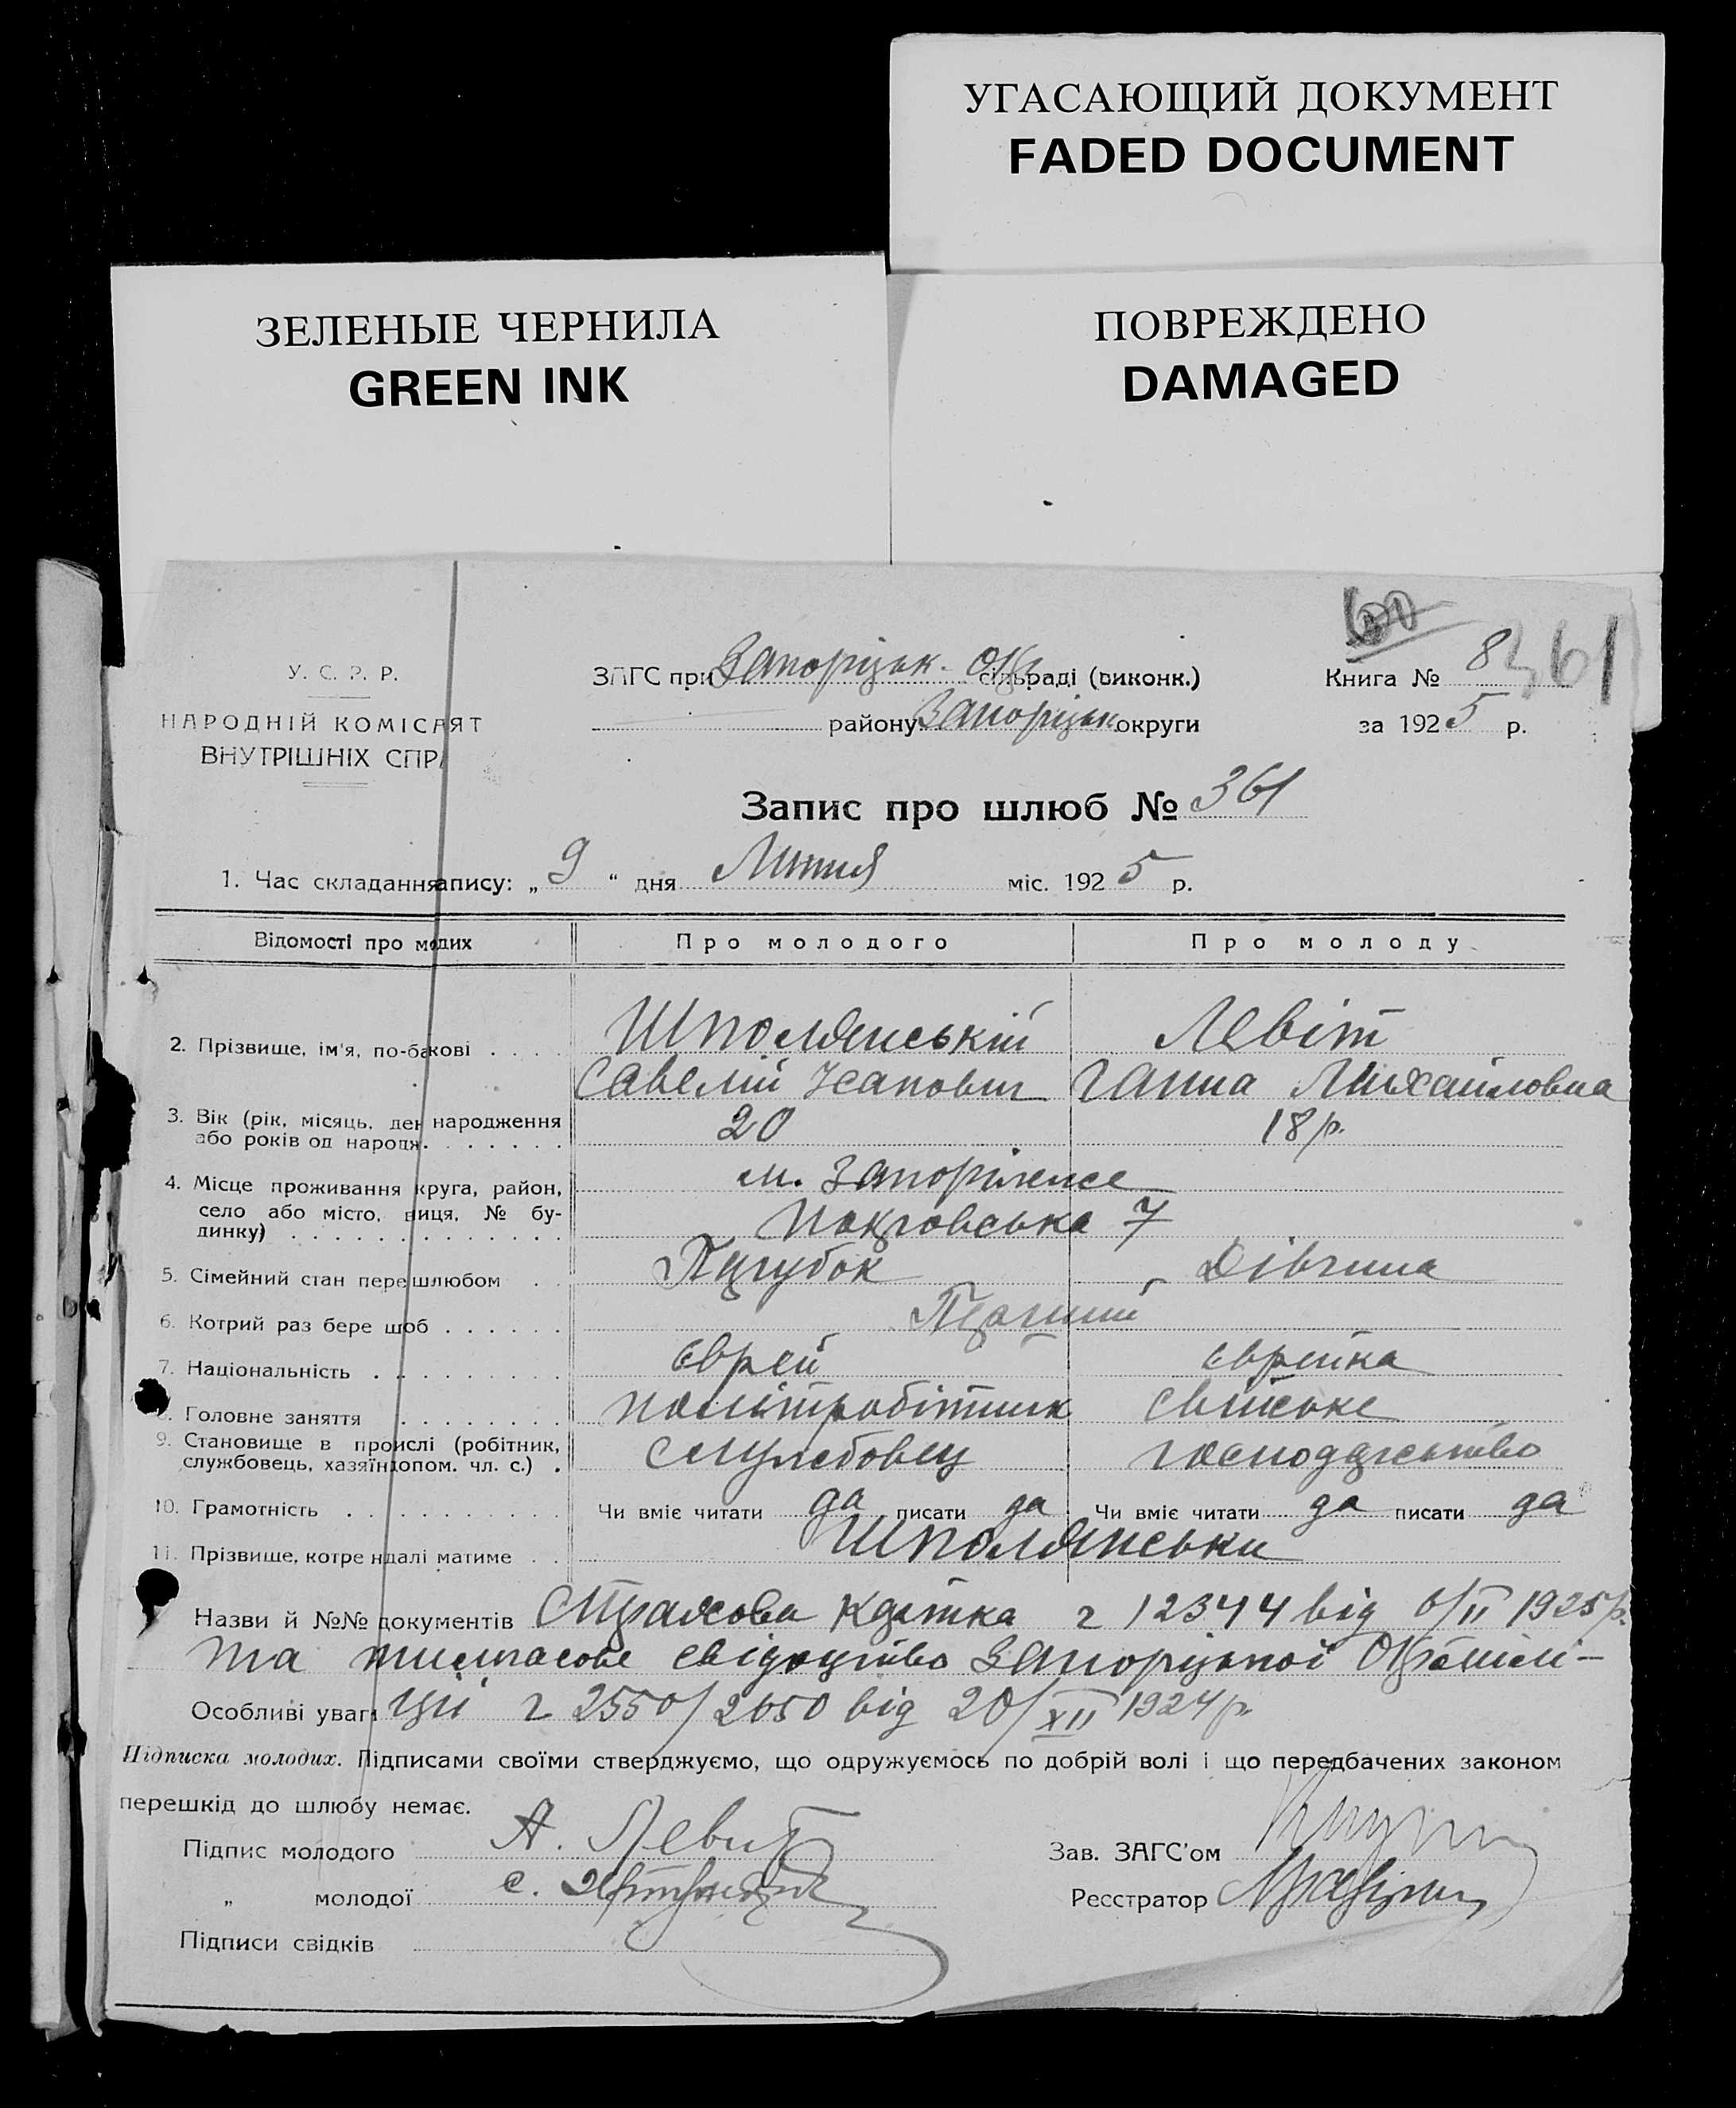 УГАСАЮЩИЙ ДОКУМЕНТ
FADED DOCUMENT
ЗЕЛЕНЫЕ ЧЕРНИЛА
GREEN INK
ПОВРЕЖДЕНО
DAMAGED
У. С. Р. Р.
НАРОДНІЙ КОМІСАЯТ
ВНУТРІШНІХ СПР
ЗАГС при Запоріцьк. Окр сільраді (виконк.)
району Запоріцьк округи
Книга № 8
361
за 1925 р.
Запис про шлюб № 361
1. Час складання апису: „ 9 “ дня Липня міс. 1925 р.
Відомості про модих
Про молодого
Про молоду
2. Прізвище, ім'я, по-бакові . . . . Шполянський Левіт
Савелій Ісакович Ганна Михайловна
3. Вік (рік, місяць, ден народження
або років од народж. . . . . . . 20 18 р.
4. Місце проживання круга, район, м. Запоріжжє
село або місто, виця, № бу-
динку) . . . . . . . . . . . . . Покровська 7
5. Сімейний стан пере шлюбом . . Парубок Дівчина
6. Котрий раз бере шюб . . . . . . Перший
7. Національність . . . . . . . . . Єврей Єврейка
8. Головне заняття . . . . . . . . політробітник Свійське
9. Становище в проислі (робітник,
службовець, хазяїн допом. чл. с.) . Службовец господарство
10. Грамотність . . . . . . . . . . Чи вміє читати да писати да Чи вміє читати да писати да
11. Прізвище, котре ндалі матиме . . Шполянськи
Назви й №№ документів Страхова картка ч 12344 від 6/II 1925 р.
та тимчасове свідоцтво Запоріцької Окрміліції
Особливі уваги ч 2550/2650 від 20/XII 1924 р.
Підписка молодих. Підписами своїми стверджуємо, що одружуємось по добрій волі і що передбачених законом
перешкід до шлюбу немає.
Підпис молодого А. Левит
„ молодої С.
Підписи свідків
Зав. ЗАГС'ом
Реєстратор